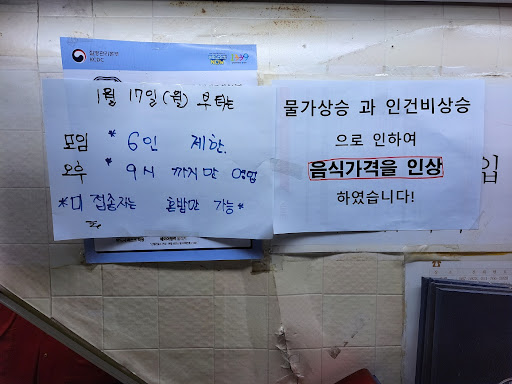 질병관리본부
KCDC
1월 17일 (월) 부터는
모임 * 6인 제한.
오후 * 9시 까지만 영업
*미 접종자는 혼밥만 가능*
물가상승 과 인건비상승
으로 인하여
음식가격을 인상
하였습니다!
입